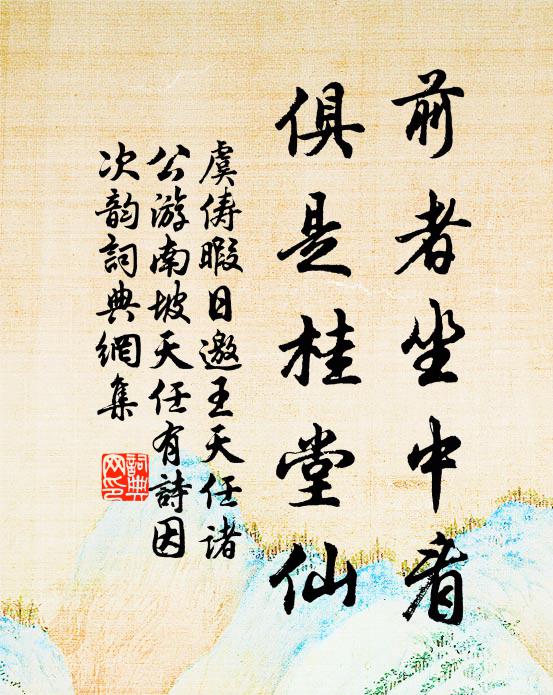 前者坐中看
俱是桂堂仙
虞儔暇日邀王天任諸
公游南坡天任有詩因
次韵詞典網集
詞典
网印